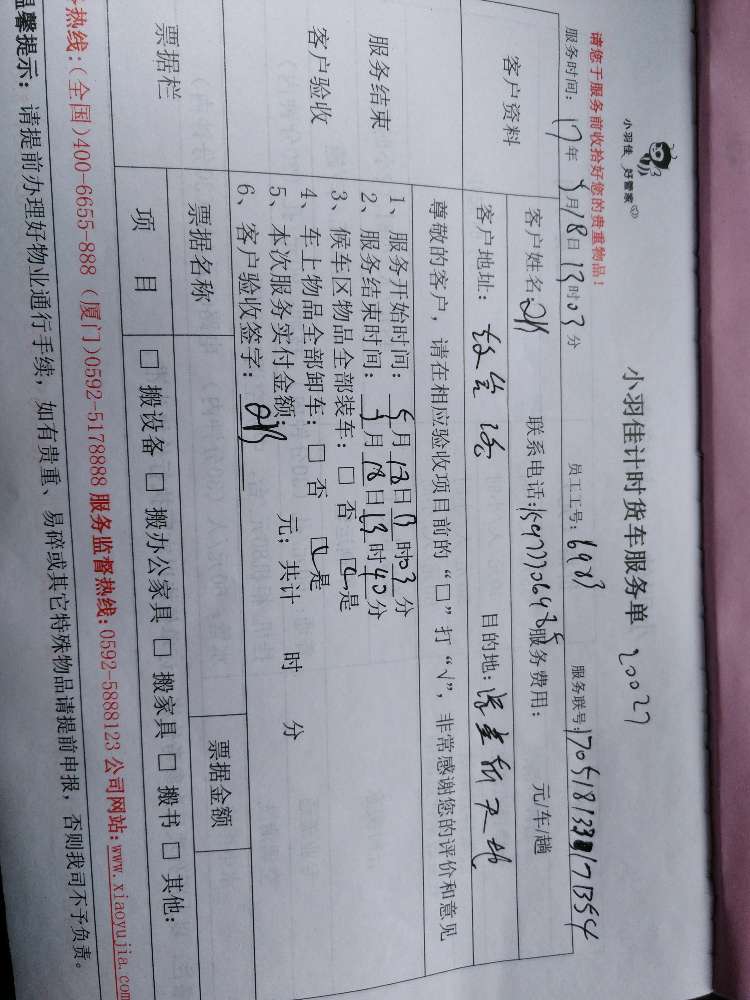 小羽佳 好管家
小羽佳计时货车服务单 20027
请您于服务前收拾好您的贵重物品!
服务时间: 17年 5月18日13时03分 员工工号: 6983 服务联号:
客户资料
客户姓名: 联系电话: 服务费用: 元/车/趟
客户地址: 目的地:
尊敬的客户,请在相应验收项目前的“□”打“√”,非常感谢您的评价和意见
服务结束
客户验收
1、服务开始时间: 5月18日13时03分
2、服务结束时间: 5月18日13时40分
3、候车区物品全部装车: □ 否 ☑是
4、车上物品全部卸车: □ 否 ☑是
5、本次服务实付金额: 元; 共计 时 分
6、客户验收签字:
票据栏
票据名称 票据金额
项 目 □ 搬设备 □ 搬办公家具 □ 搬家具 □ 搬书 □ 其他:
热线:(全国)400-6655-888 (厦门)0592-5178888 服务监督热线: 0592-5888123 公司网站: www.xiaoyujia.com
温馨提示: 请提前办理好物业通行手续, 如有贵重、易碎或其它特殊物品请提前申报, 否则我司不予负责。